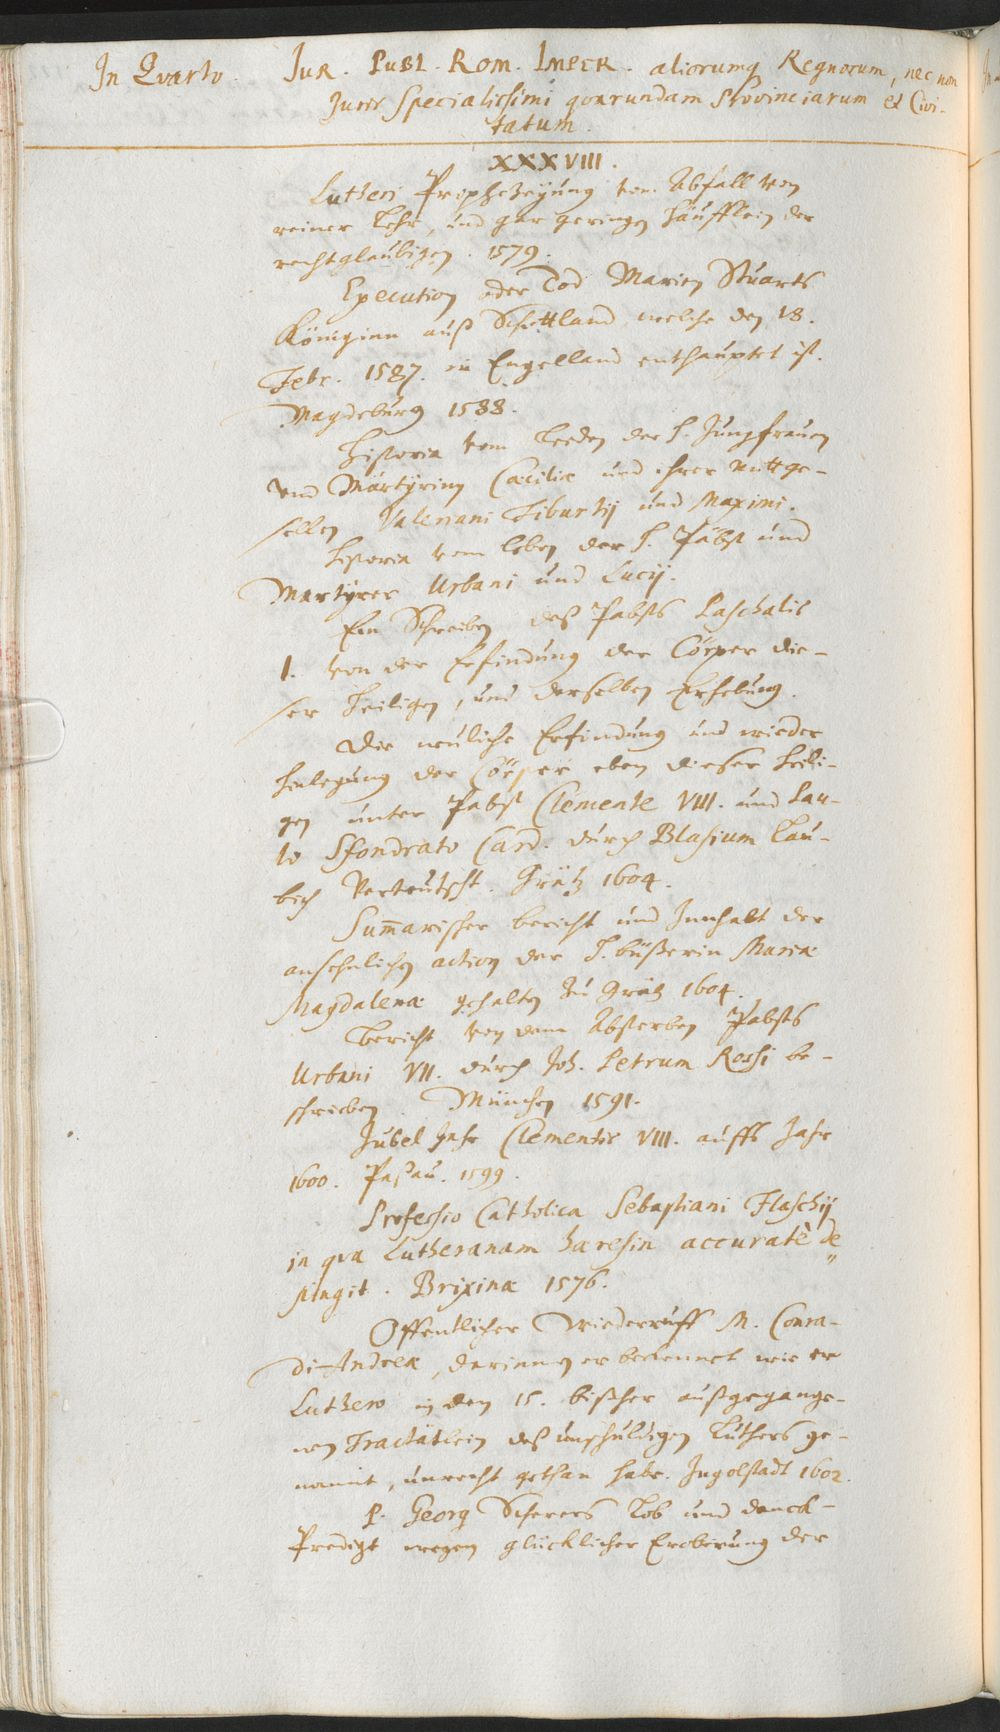 In Qvarto. Jur. Publ. Rom. Imper. aliorumq Regnorum, nec non
Juris specialissimi quarundam Provinciarum et Civi-
tatum.
XXXVIII.
Lutheri Prophezeyung vom Abfall von
reiner Lehr, und gar geringen häufflein der
rechtglaubigen. 1579.
Execution oder Tod Marien Stuarts
Königinn auß Schottland welche den 18.
Febr. 1587. in Engelland enthauptet ist.
Magdeburg 1588.
Historia vom Leeden der H. Jungfrauen
und Märtyrin Cæciliæ und ihrer mittge-
sellen Valeriani Tiburtij und Maximi.
Historia vom leben der H. Päbst und
Martyrer Urbani und Lucij.
Ein Schreiben deß Pabsts Paschalis
1. von der Erfindung der Cörper die-
ser Heiligen, und derselben Erhebung.
Die neuliche Erfindung und wieder
hinlegung der Cörper eben dieser Heili-
gen unter Pabst Clemente VIII. und Pau-
lo Sfondrato Card. durch Blasium Lau-
bich Verteutscht. Grätz 1604.
Summarischer bericht und Innhalt der
ansehnlichen action der H. büßerin Mariæ
Magdalenæ gehalten zu Grätz 1604.
Bericht von dem Absterben Pabsts
Urbani VII. durch Joh. Petrum Rossi be-
schrieben München 1591.
Jubel Jahr Clementis VIII. auffs Jahr
1600. Paßau. 1599.
Professio Catholica Sebastiani Flaschij
in qva Lutheranam hæresin accuratè de
pingit. Brixinæ 1576.
Offentlicher Wiederruff M. Conra-
di Andreæ, darinnen er bekennet wie er
Luthero in den 15. bißher außgegange-
nen Tractätlein deß unschuldigen Luthers ge-
nannt, unrecht gethan habe. Ingolstadt 1602.
P. Georg Scherers Lob und danck-
Predigt wegen glücklicher Eroberung der